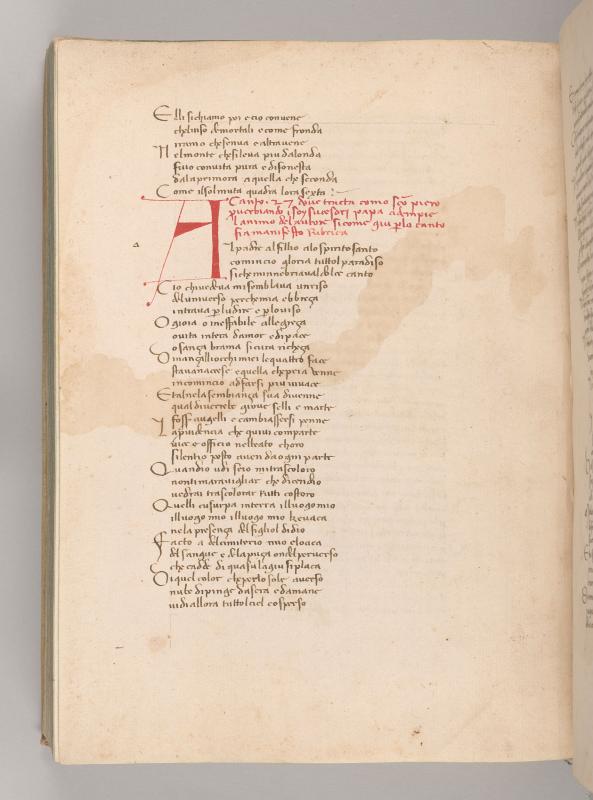 Elli sichiamo poi ecio convene
cheluso demortali e come fronda
irramo chesenva e altravene
Nelmonte chesileva piu dalonda
fuio convita pura e disonesta
dalaprimora a quella che seconda
Come ilsol muta quadra lora sexta
Canto. 27 dove tracta como sco piero
Fia manifesto Rubrica
Al padre al fillio alo spirito santo
comincio gloria tuttol paradiso
siche minnebriaval dolce canto
Cio chivedeva mi semblava unriso
del universo perchemia ebbreça
intrava p ludire e p loviso
O gioia o ineffabile allegreça
o vita intera damor e dipace
o sança brama sicura richeça
Dinançi alliocchi miei le quattro face
stavan accese e quella che pria venne
incomincio adfarsi piu vivace
E tal nela sembiança sua divenne
qual diverrebe giove selli e marte
fosser augelli e cambiassersi penne
La pvidencia che quivi comparte
vice e officio nelbeato choro
silentio posto aven daogni parte
Quandio udi sero mi trascoloro
non ti maravigliar che dicendio
vedrai trascolorar tutti costoro
Quelli cusurpa interra illuogo mio
illuogo mio illuogo mio ke vaca
nela presença del figliol di dio
Facto a del cimiterio mio cloaca
del sangue e dela puça ondel perverso
che cadde di quasu lagiu si placa
Di quel color che per lo sole averso
nube dipinge da sera e da mane
vidi allora tuttol ciel cosperso